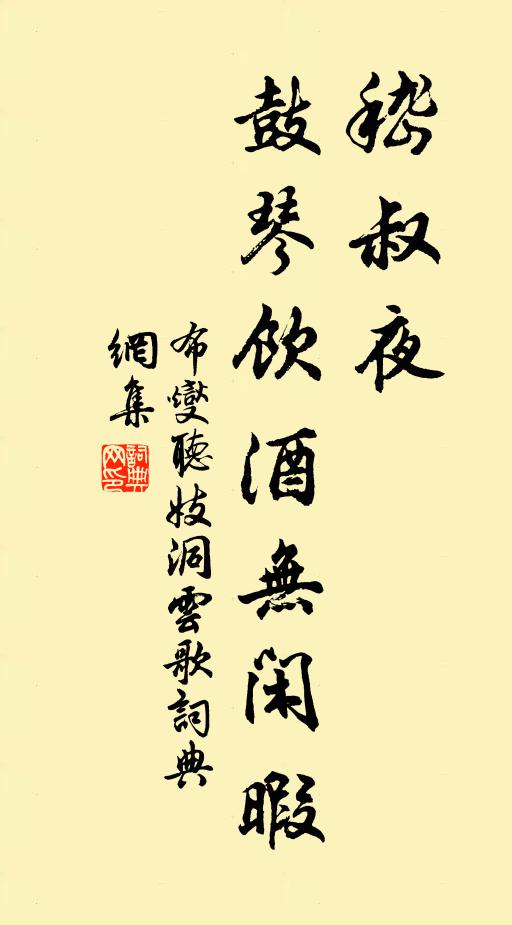 嵇叔夜
鼓琴飲酒無閑暇
布燮聽妓洞雲歌詞典
網集
詞典
网印